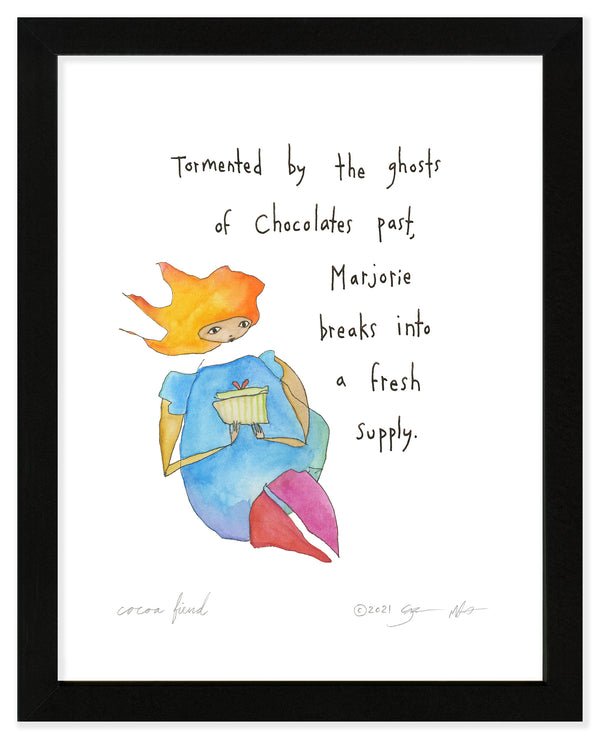 Tormented by the ghosts
of Chocolates past,
Marjorie
breaks into
a fresh
supply.
cocoa fiend
©2021